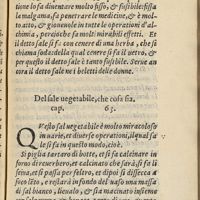 tione lo fa diuentare molto fisso, & fusibile: fissa
la malgama, fa penetrare le medicine, & è mol-
to atto, & gioueuole in tutte le operationi d'al-
chimia, percioche fa molti mirabili effetti. Et
detto sale si fà con cenere di una herba, che si
chiama soda della qual cenere si fà il uetro, &
per questo il detto sale è tanto fusibile. Serue an
cora il detto sale ne i beletti delle donne.
Del sale uegetabile, che cosa sia.
cap. 63.
QVesto sal uegetabile è molto miracoloso
in uarie, et diuerse operationi, il qual sa
le si fà in questo modo, cioè.
Si piglia tartaro di botte, et si fa calcinare in
forno di reuerbero, et calcinato che sarà, si fà le
seiua, et si passi per feltro, et si dissecca a
fuoco lēto, e restarà in fondo del uaso una massa
di sal bianco, lieualo, & sia macinato insieme